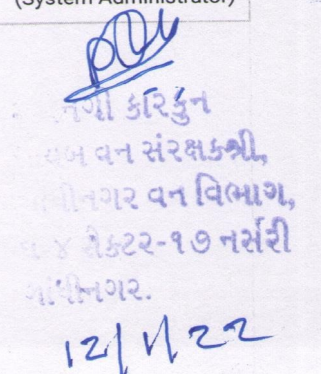 (System Administrator)
કારકુન
વન સંરક્ષકશ્રી,
વન વિભાગ,
સેક્ટર-૧૭ નર્સરી
ગાંધીનગર.
12/1/22